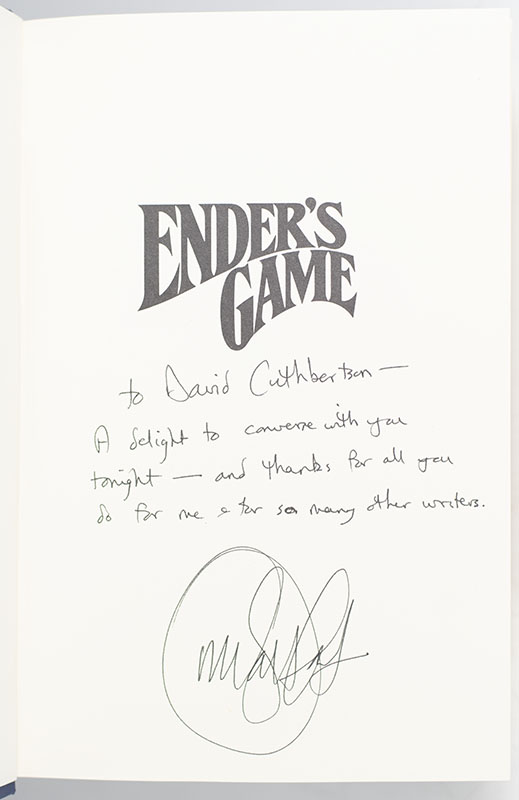 ENDER'S
GAME
to David Cuthbertson —
A delight to converse with you
tonight — and thanks for all you
do for me & for so many other writers.